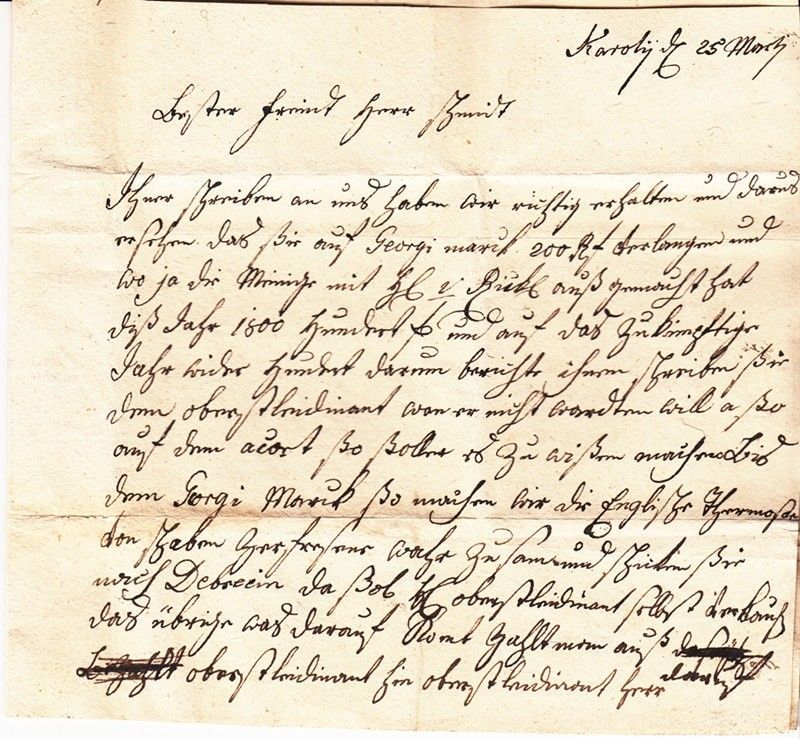 Karolij d 25 Marti
bester freind Herr schmidt
Ihner schreiben an uns haben wir richtig erhalten und daraus
ersehen das sie auf Georgi marck 200 Rf verlangen und
wo ja die Meinige mit H v auß gemacht hat
diß Jahr 1800 Hundert f und auf das zu kinftige
Jahr wider Hundert darum berichte ihnen schreiben sie
dem oberstleidinant wan er nicht wardten will a so
auf dem acort so soller es zu wißen machen bis
dem Gorgi Marck so machen wir die Englische
von schaben wahr zu sam und schiken sie
nach Debrecin da sol H oberstleidinant selbst verkaufen
das übrige was darauf komt zahlt man auß
bezahlt oberstleidinant hie oberstleidinant herr